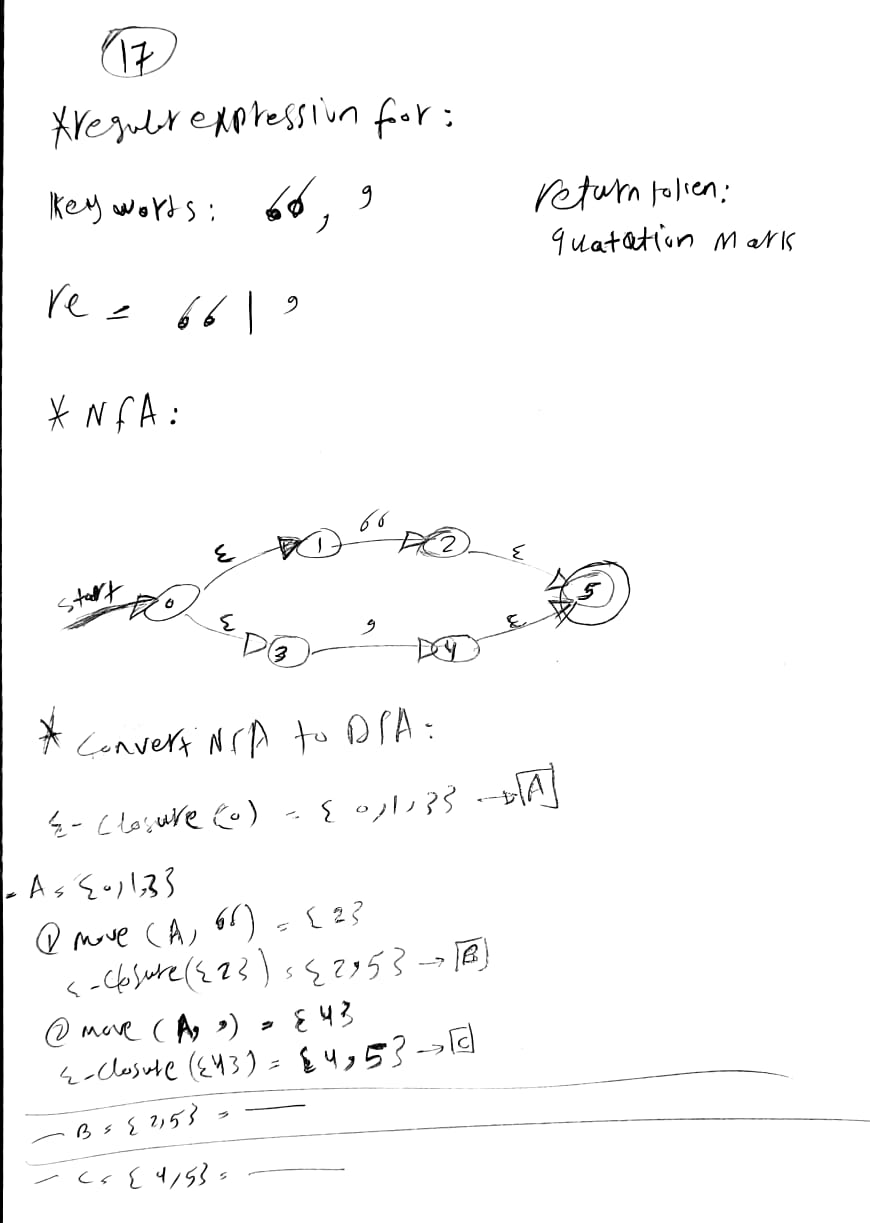 17
*regulr expression foor:
Key words: “ , ’
return token:
quatation mark
re = “ | ’
* NFA:
start 0 ε 1 “ 2 ε 5
ε 3 ’ 4 ε
* Convert NFA to DFA:
ε-closure (0) = {0,1,3} → A
- A = {0,1,3}
① move (A, “) = {2}
ε-closure({2}) = {2,5} → B
② move (A, ’) = {4}
ε-closure ({4}) = {4,5} → C
- B = {2,5} = —
- C = {4,5} = —